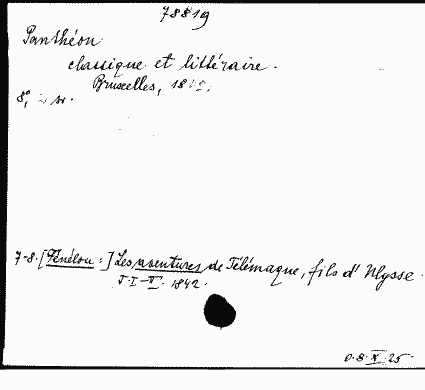 78819
Panthéon
classique et littéraire.
Bruxelles, 18
8°,
7-8. [Fénélon:] Les aventures de Télémaque, fils d' Ulysse.
T. I-II. 1842.
0.8.X.25